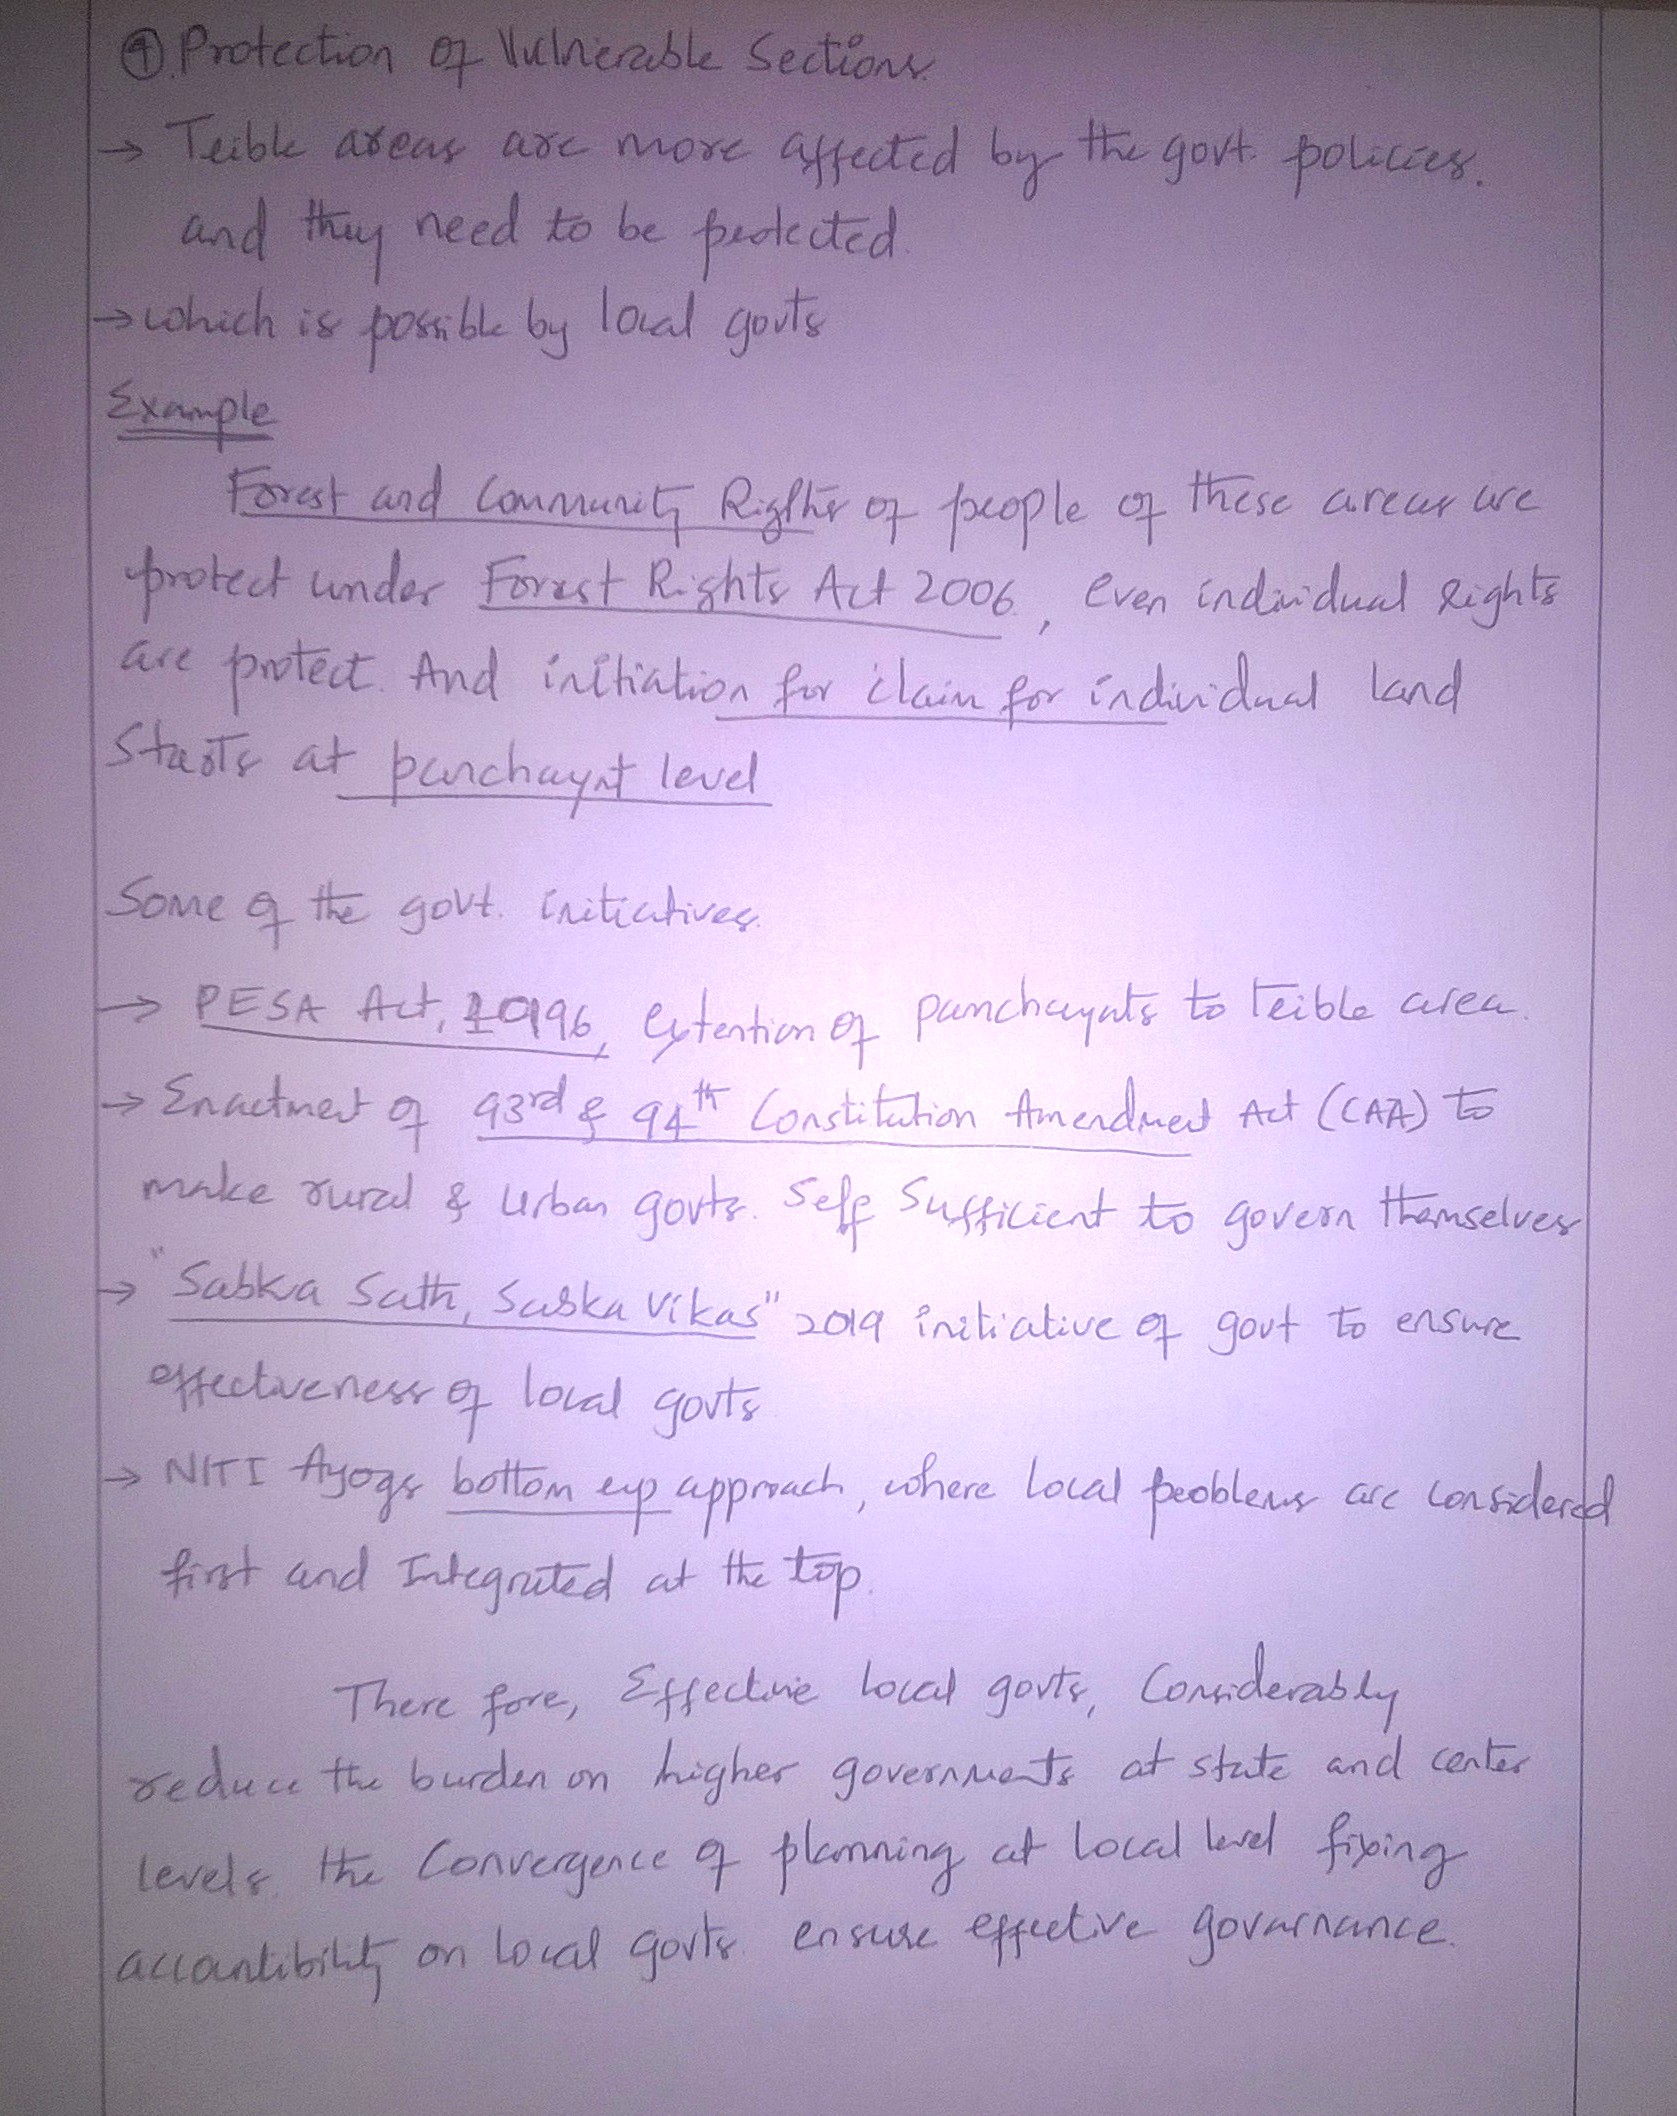 ④. Protection of Vulnerable Sections.
→ Teible areas are more affected by the govt. policies.
and they need to be protected.
→ which is possible by local govts
Example
Forest and Community Rigths of people of these areas are
protect under Forest Rights Act 2006, even individual Rights
are protect. And initiation for claim for individual land
Starts at panchayat level
Some of the govt. initiatives.
→ PESA Act, 1996, extention of panchayats to Teible area.
→ Enactment of 93rd & 94th Constitution Amendment Act (CAA) to
make rural & Urban govts. Self Sufficient to govern themselves
→ "Sabka Sath, Sabka Vikas" 2019 initiative of govt to ensure
effectiveness of local govts
→ NITI Ayogs bottom up approach, where local problems are considered
first and Integrated at the top.
There fore, Effective local govts, Considerably
reduce the burden on higher governments at state and center
levels. the Convergence of planning at local level fixing
accountibility on local govts. ensure effective governance.